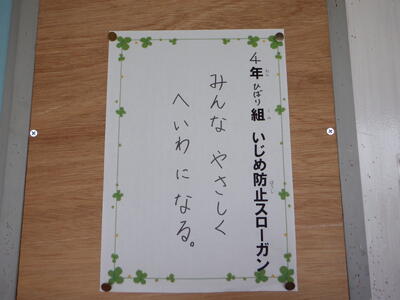 4年ひばり組 いじめ防止スローガン
みんな やさしく
へいわ に なる。